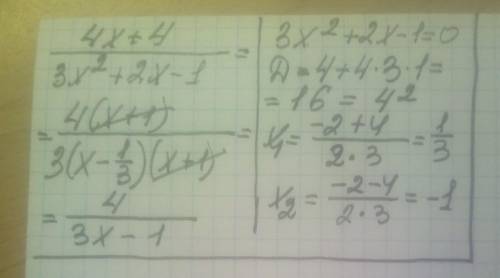 (4x+4)/(3x²+2x-1) =
= 4(x+1)/(3(x-1/3)(x+1)) =
= 4/(3x-1)
3x²+2x-1=0
D=4+4·3·1=
=16=4²
x₁=(-2+4)/(2·3)=1/3
x₂=(-2-4)/(2·3)=-1